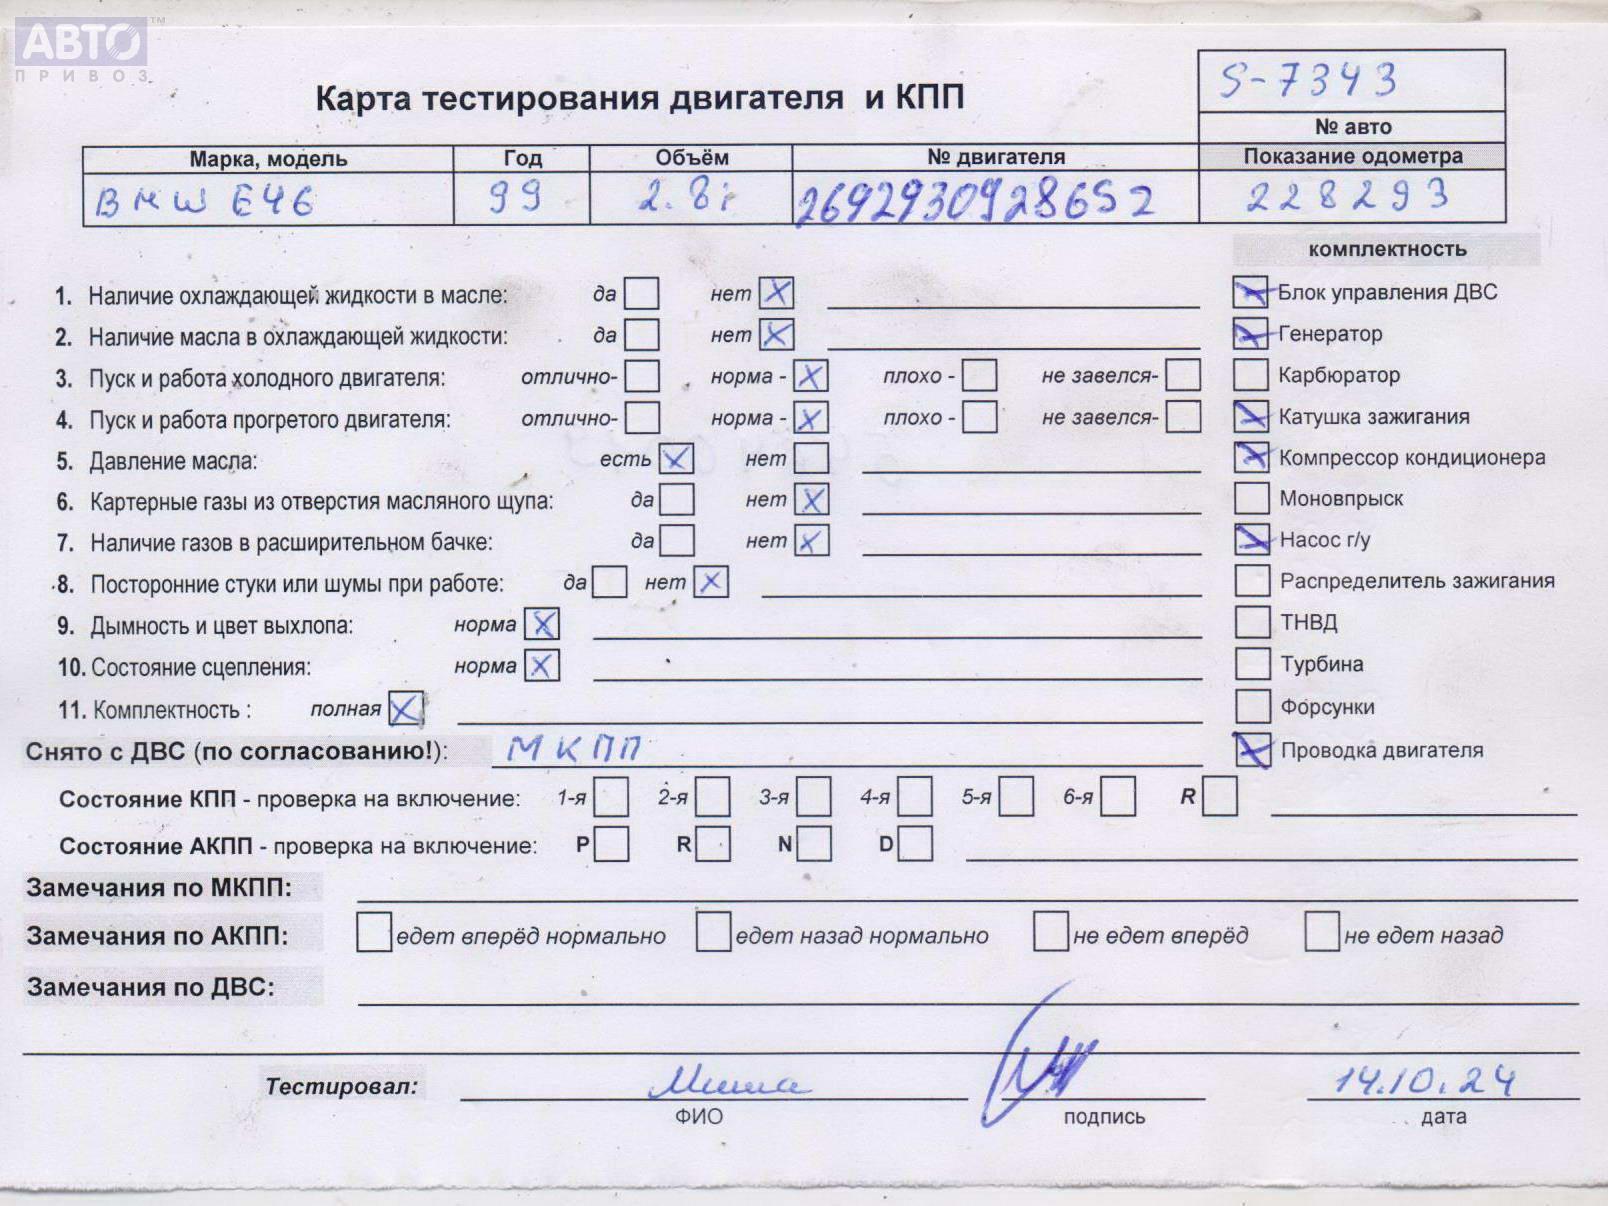 АВТО™
ПРИВОЗ
Карта тестирования двигателя и КПП
S-7343
№ авто
Марка, модель Год Объём № двигателя Показание одометра
BMW E46 99 2.8i 26929309286S2 228293
комплектность
1. Наличие охлаждающей жидкости в масле: да нет X
Блок управления ДВС X
2. Наличие масла в охлаждающей жидкости: да нет X
Генератор X
3. Пуск и работа холодного двигателя: отлично- норма - X плохо - не завелся-
Карбюратор
4. Пуск и работа прогретого двигателя: отлично- норма - X плохо - не завелся-
X Катушка зажигания
5. Давление масла: есть X нет
X Компрессор кондиционера
6. Картерные газы из отверстия масляного щупа: да нет X
Моновпрыск
7. Наличие газов в расширительном бачке: да нет X
X Насос г/у
8. Посторонние стуки или шумы при работе: да нет X
Распределитель зажигания
9. Дымность и цвет выхлопа: норма X
ТНВД
10. Состояние сцепления: норма X
Турбина
11. Комплектность : полная X
Форсунки
Снято с ДВС (по согласованию!): МКПП
X Проводка двигателя
Состояние КПП - проверка на включение: 1-я 2-я 3-я 4-я 5-я 6-я R
Состояние АКПП - проверка на включение: P R N D
Замечания по МКПП:
Замечания по АКПП: едет вперёд нормально едет назад нормально не едет вперёд не едет назад
Замечания по ДВС:
Тестировал: Миша 14.10.24
ФИО подпись дата